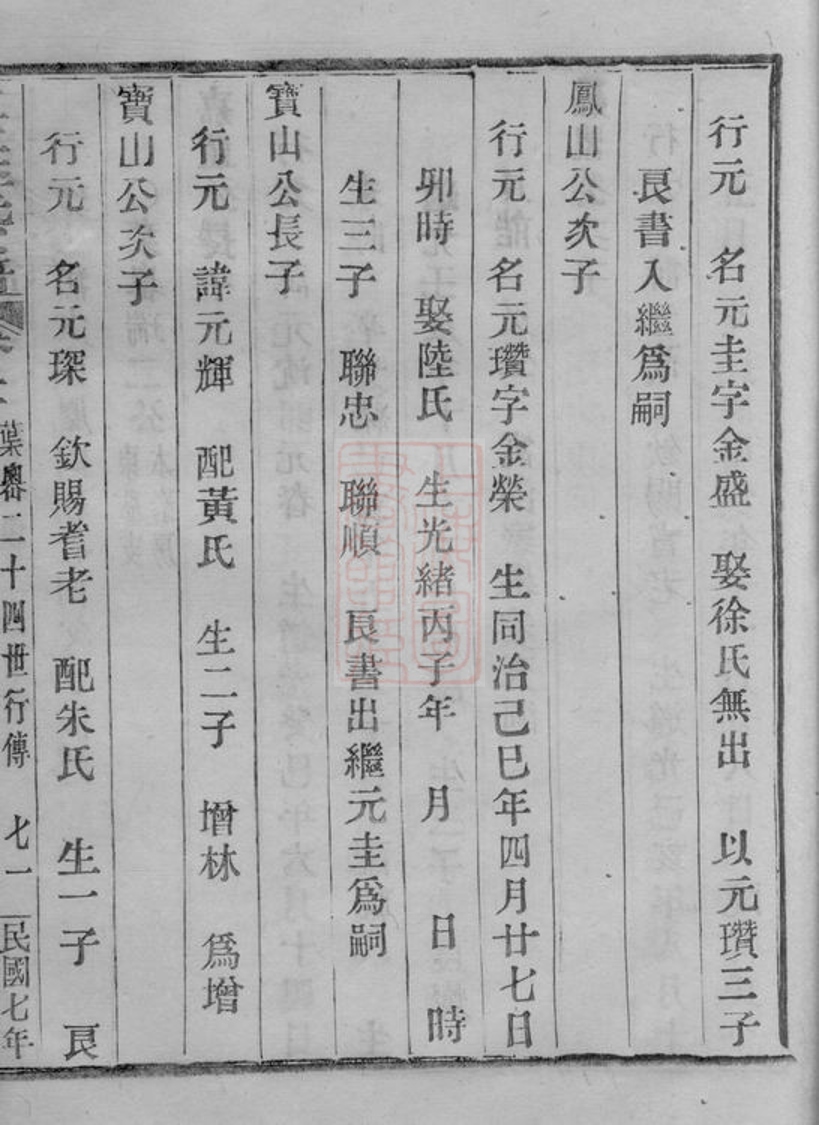 行元 名元圭字金盛 娶徐氏無出 以元瓚三子
良書入繼爲嗣
鳳山公次子
行元 名元瓚字金榮 生同治己巳年四月廿七日
卯時 娶陸氏 生光緒丙子年 月 日 時
生三子 聯忠 聯順 良書出繼元圭爲嗣
寶山公長子
行元 諱元輝 配黃氏 生二子 增林 爲增
寶山公次子
行元 名元琛 欽賜耆老 配朱氏 生一子 良
葉嶴二十四世行傳 七一 民國七年